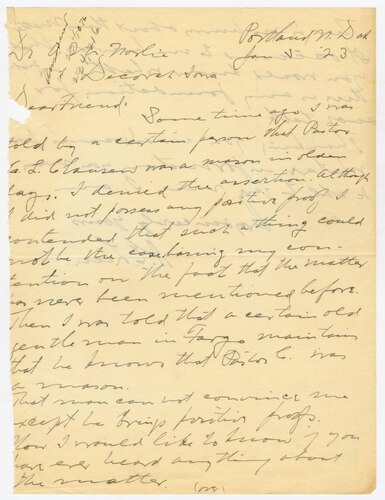 Portland N. Dak
Jan 5 '23
Dr O. M. Norlie
Decorah Iowa
Dear Friend:
Some time ago I was
told by a certain person that Pastor
C. L. Clausen was a mason in olden
days. I denied the assertion. Although
I did not possess any positive proof I
contended that such a thing could
not be the case basing my con-
tention on the fact that the matter
has never been mentioned before.
Then I was told that a certain old
gentleman in Fargo maintains
that he knows that Pastor C. was
a mason.
That man can not convince me
except he brings positive proofs.
Now I would like to know if you
have ever heard anything about
the matter.
(over)